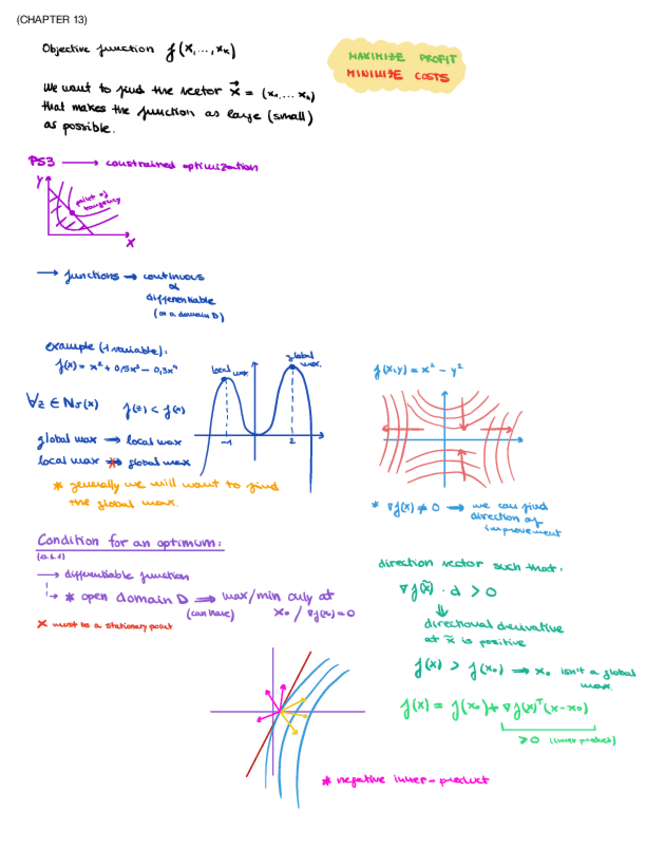 (CHAPTER 13)
Objective function f(x₁,...,xₙ)
MAXIMIZE PROFIT
MINIMIZE COSTS
We want to find the vector x⃗ = (x₁,...xₙ)
that makes the function as large (small)
as possible.
PS3 ⟶ constrained optimization
y
point of
tangency
x
→ functions → continuous
differentiable
(on a domain D)
example (1 variable):
f(x) = x² + 0,5x³ − 0,3x⁴
local max.
global
max.
-1
2
f(x,y) = x² − y²
∀z ∈ Nδ(x) f(z) < f(x)
global max → local max
local max ↛ global max
* generally we will want to find
the global max.
* ∇f(x) ≠ 0 → we can find
direction of
improvement
Condition for an optimum:
→ differentiable function
↳ * open domain D ⟹ max/min only at
(can have) x₀ / ∇f(x₀)=0
x must be a stationary point
direction vector such that:
∇f(x̃) · d > 0
⇓
directional derivative
at x̃ is positive
f(x) > f(x₀) → x₀ isn't a global
max.
f(x) = f(x₀) + ∇f(x)ᵀ(x−x₀)
>0 (inner product)
* negative inner-product